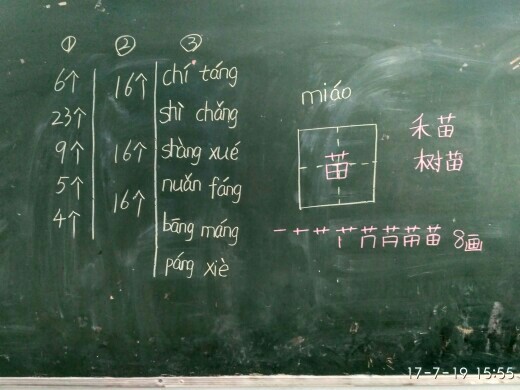 ① ② ③
6个 16个 chí táng
23个 shì chǎng
9个 16个 shàng xué
5个 16个 nuǎn fáng
4个 bāng máng
páng xiè
miáo
苗
禾苗
树苗
8画
17-7-19 15:55